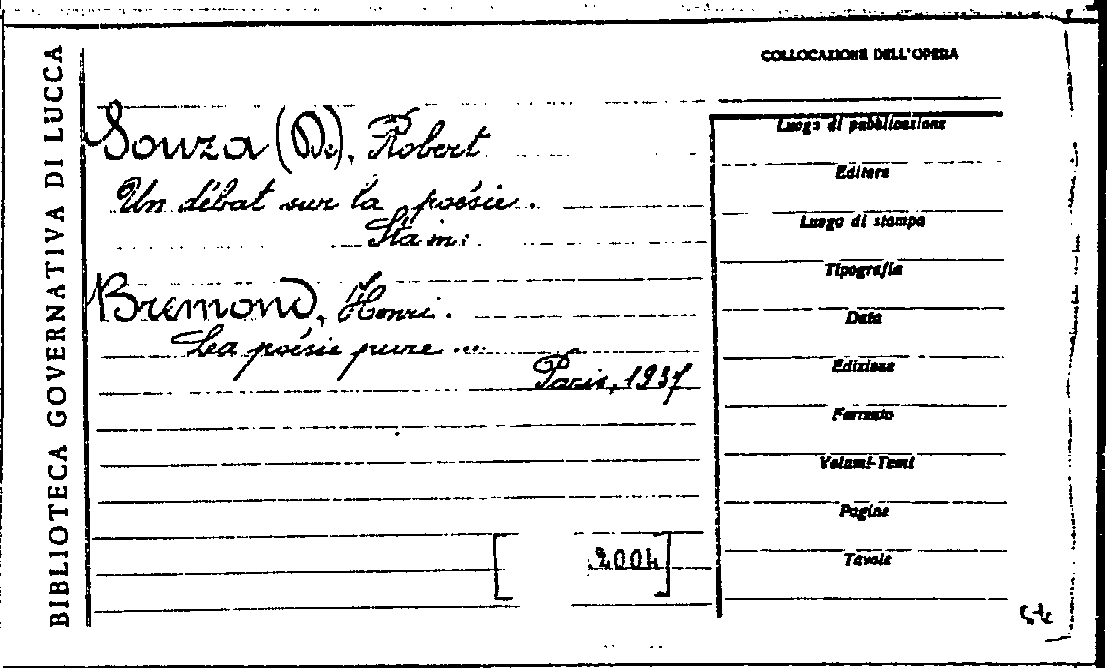 BIBLIOTECA GOVERNATIVA DI LUCCA
COLLOCAZIONE DELL'OPERA
Souza (De), Robert
Un débat sur la poésie.
Sta in:
Bremond, Henri.
La poésie pure ...
Paris, 1937
[ 2004 ]
Luogo di pubblicazione
Editore
Luogo di stampa
Tipografia
Data
Edizione
Formato
Volumi-Tomi
Pagine
Tavole